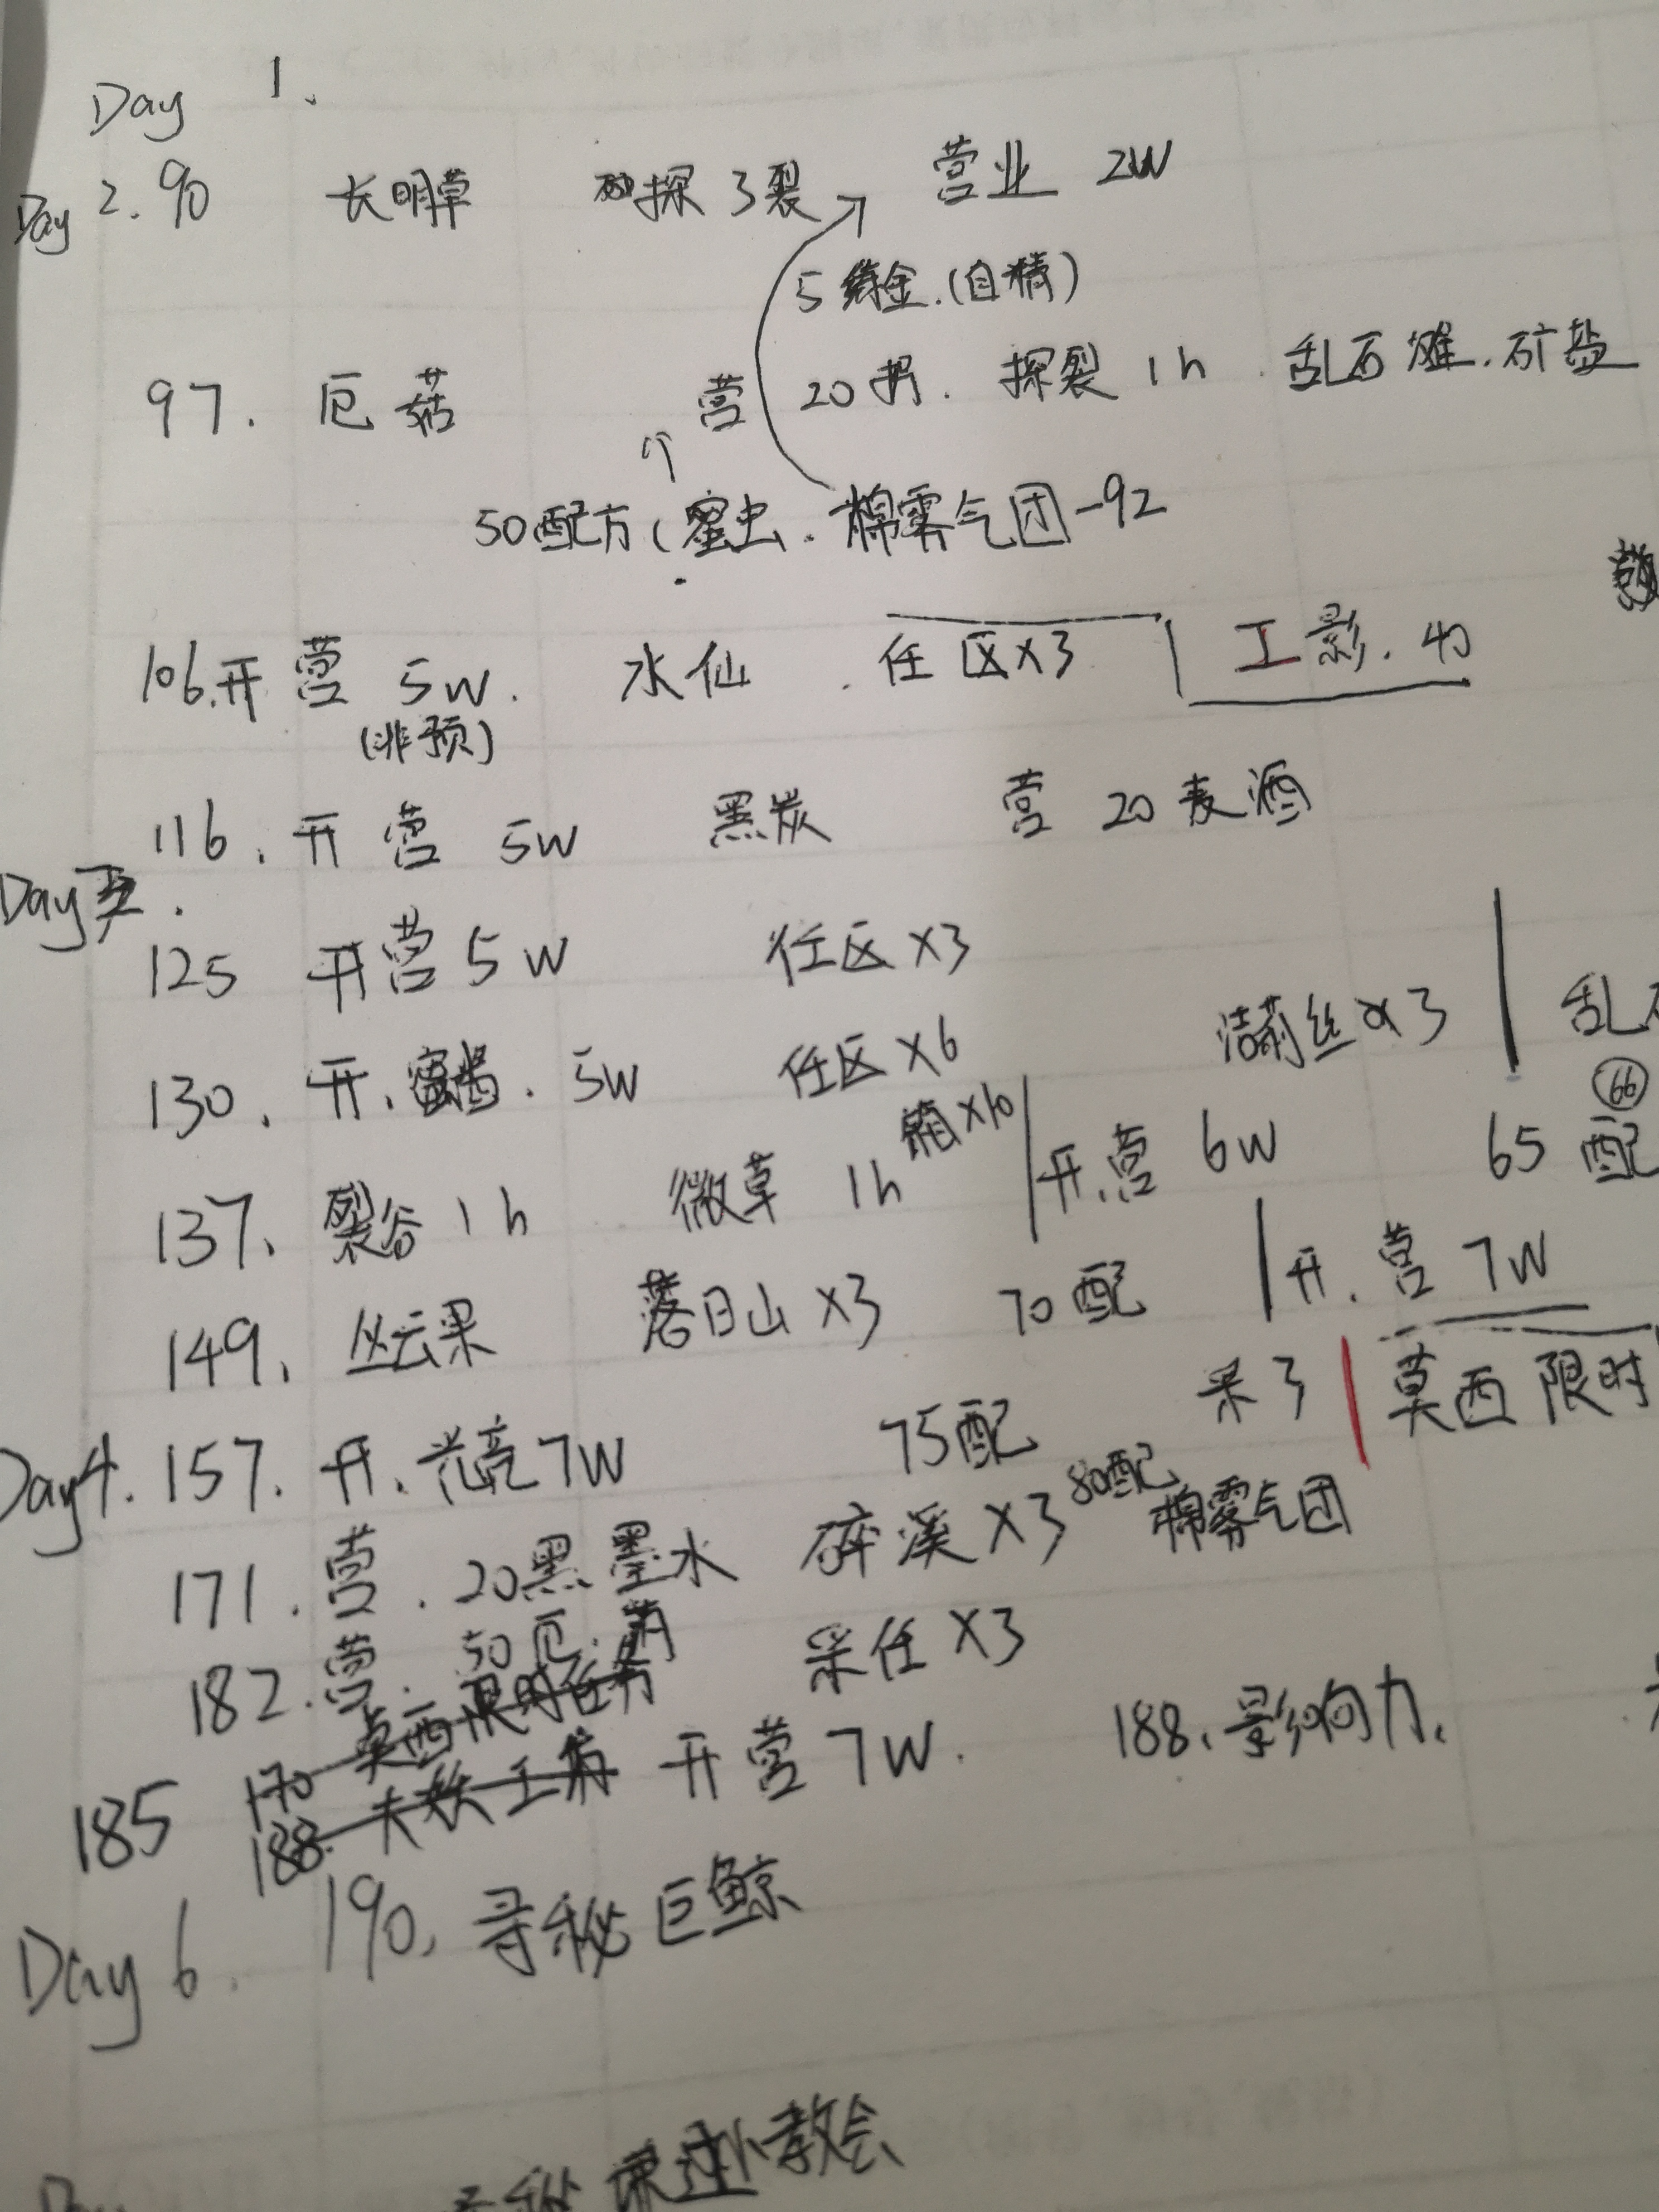 Day 1、
Day 2. 90 长明草 探3裂 营业 2W
5 金.(自精)
97. 厄菇 营 20 . 探裂 1h . 乱石滩. 矿盐
50配方(蜜虫. 棉雾气团-92
106.开营 5W. 水仙 . 任区X3 工影.
(非预)
116. 开营 5W 黑炭 营 20麦酒
Day .
125 开营5W 任区X3
130. 开. 蜜酱. 5W 任区X6 洁莉丝X3 乱
137、裂谷1h 微草 1h 箱X10 开.营 6W 65配 66
149. 丛云果 落日山X3 70配 开.营 7W
Day4. 157. 开. 光亮7W 75配 采3 莫西限时
171. 营. 20黑墨水 碎溪X3 80配 棉雾气团
182. 营. 50厄. 采任X3
170 莫西限时任务
185 开营7W. 188、影响力、
188.
Day 6. 190. 寻秘巨鲸
教会